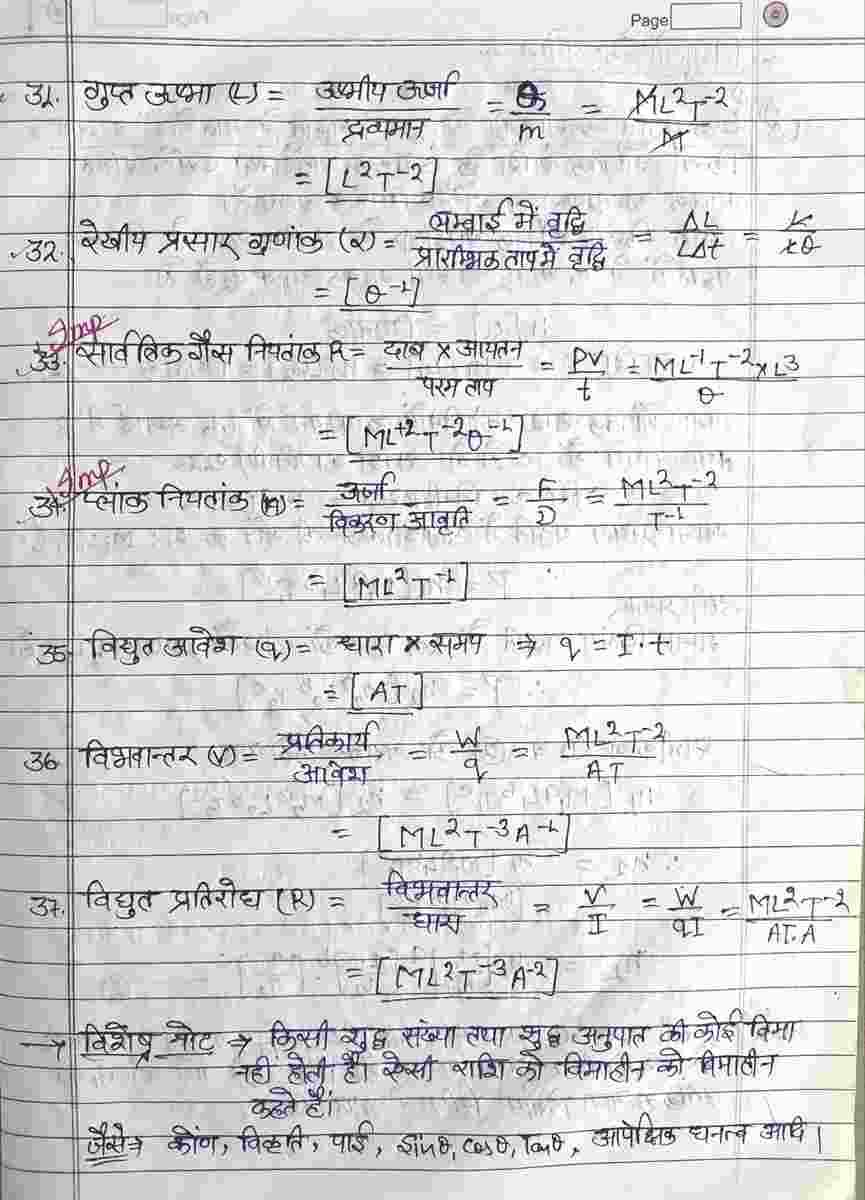 Page
31. गुप्त ऊष्मा (L) = ऊष्मीय ऊर्जा / द्रव्यमान = Q/m = ML²T⁻² / M
= [L²T⁻²]
32. रेखीय प्रसार गुणांक (α) = लम्बाई में वृद्धि / प्रारम्भिक ताप में वृद्धि = ΔL / LΔt = L / L θ
= [θ⁻¹]
Imp
33. सार्वत्रिक गैस नियतांक R = दाब × आयतन / परम ताप = PV/t = ML⁻¹T⁻² × L³ / θ
= [ML⁺²T⁻²θ⁻¹]
Imp
34. प्लांक नियतांक (h) = ऊर्जा / विकरण आवृति = E/ν = ML²T⁻² / T⁻¹
= [ML²T⁻¹]
35. विद्युत आवेश (q) = धारा × समय ⇒ q = I.t
= [AT]
36. विभवान्तर (V) = प्रतिकार्य / आवेश = W/q = ML²T⁻² / AT
= [ML²T⁻³A⁻¹]
37. विद्युत प्रतिरोध (R) = विभवान्तर / धारा = V/I = W/qI = ML²T⁻² / AT.A
= [ML²T⁻³A⁻²]
→ विशेष नोट → किसी शुद्ध संख्या तथा शुद्ध अनुपात की कोई विमा
नही होती है। ऐसी राशि को विमाहीन को विमाहीन
कहते है।
जैसे→ कोंण, विकृति, पाई, sinθ, cosθ, Tanθ, आपेक्षिक घनत्व आदि।